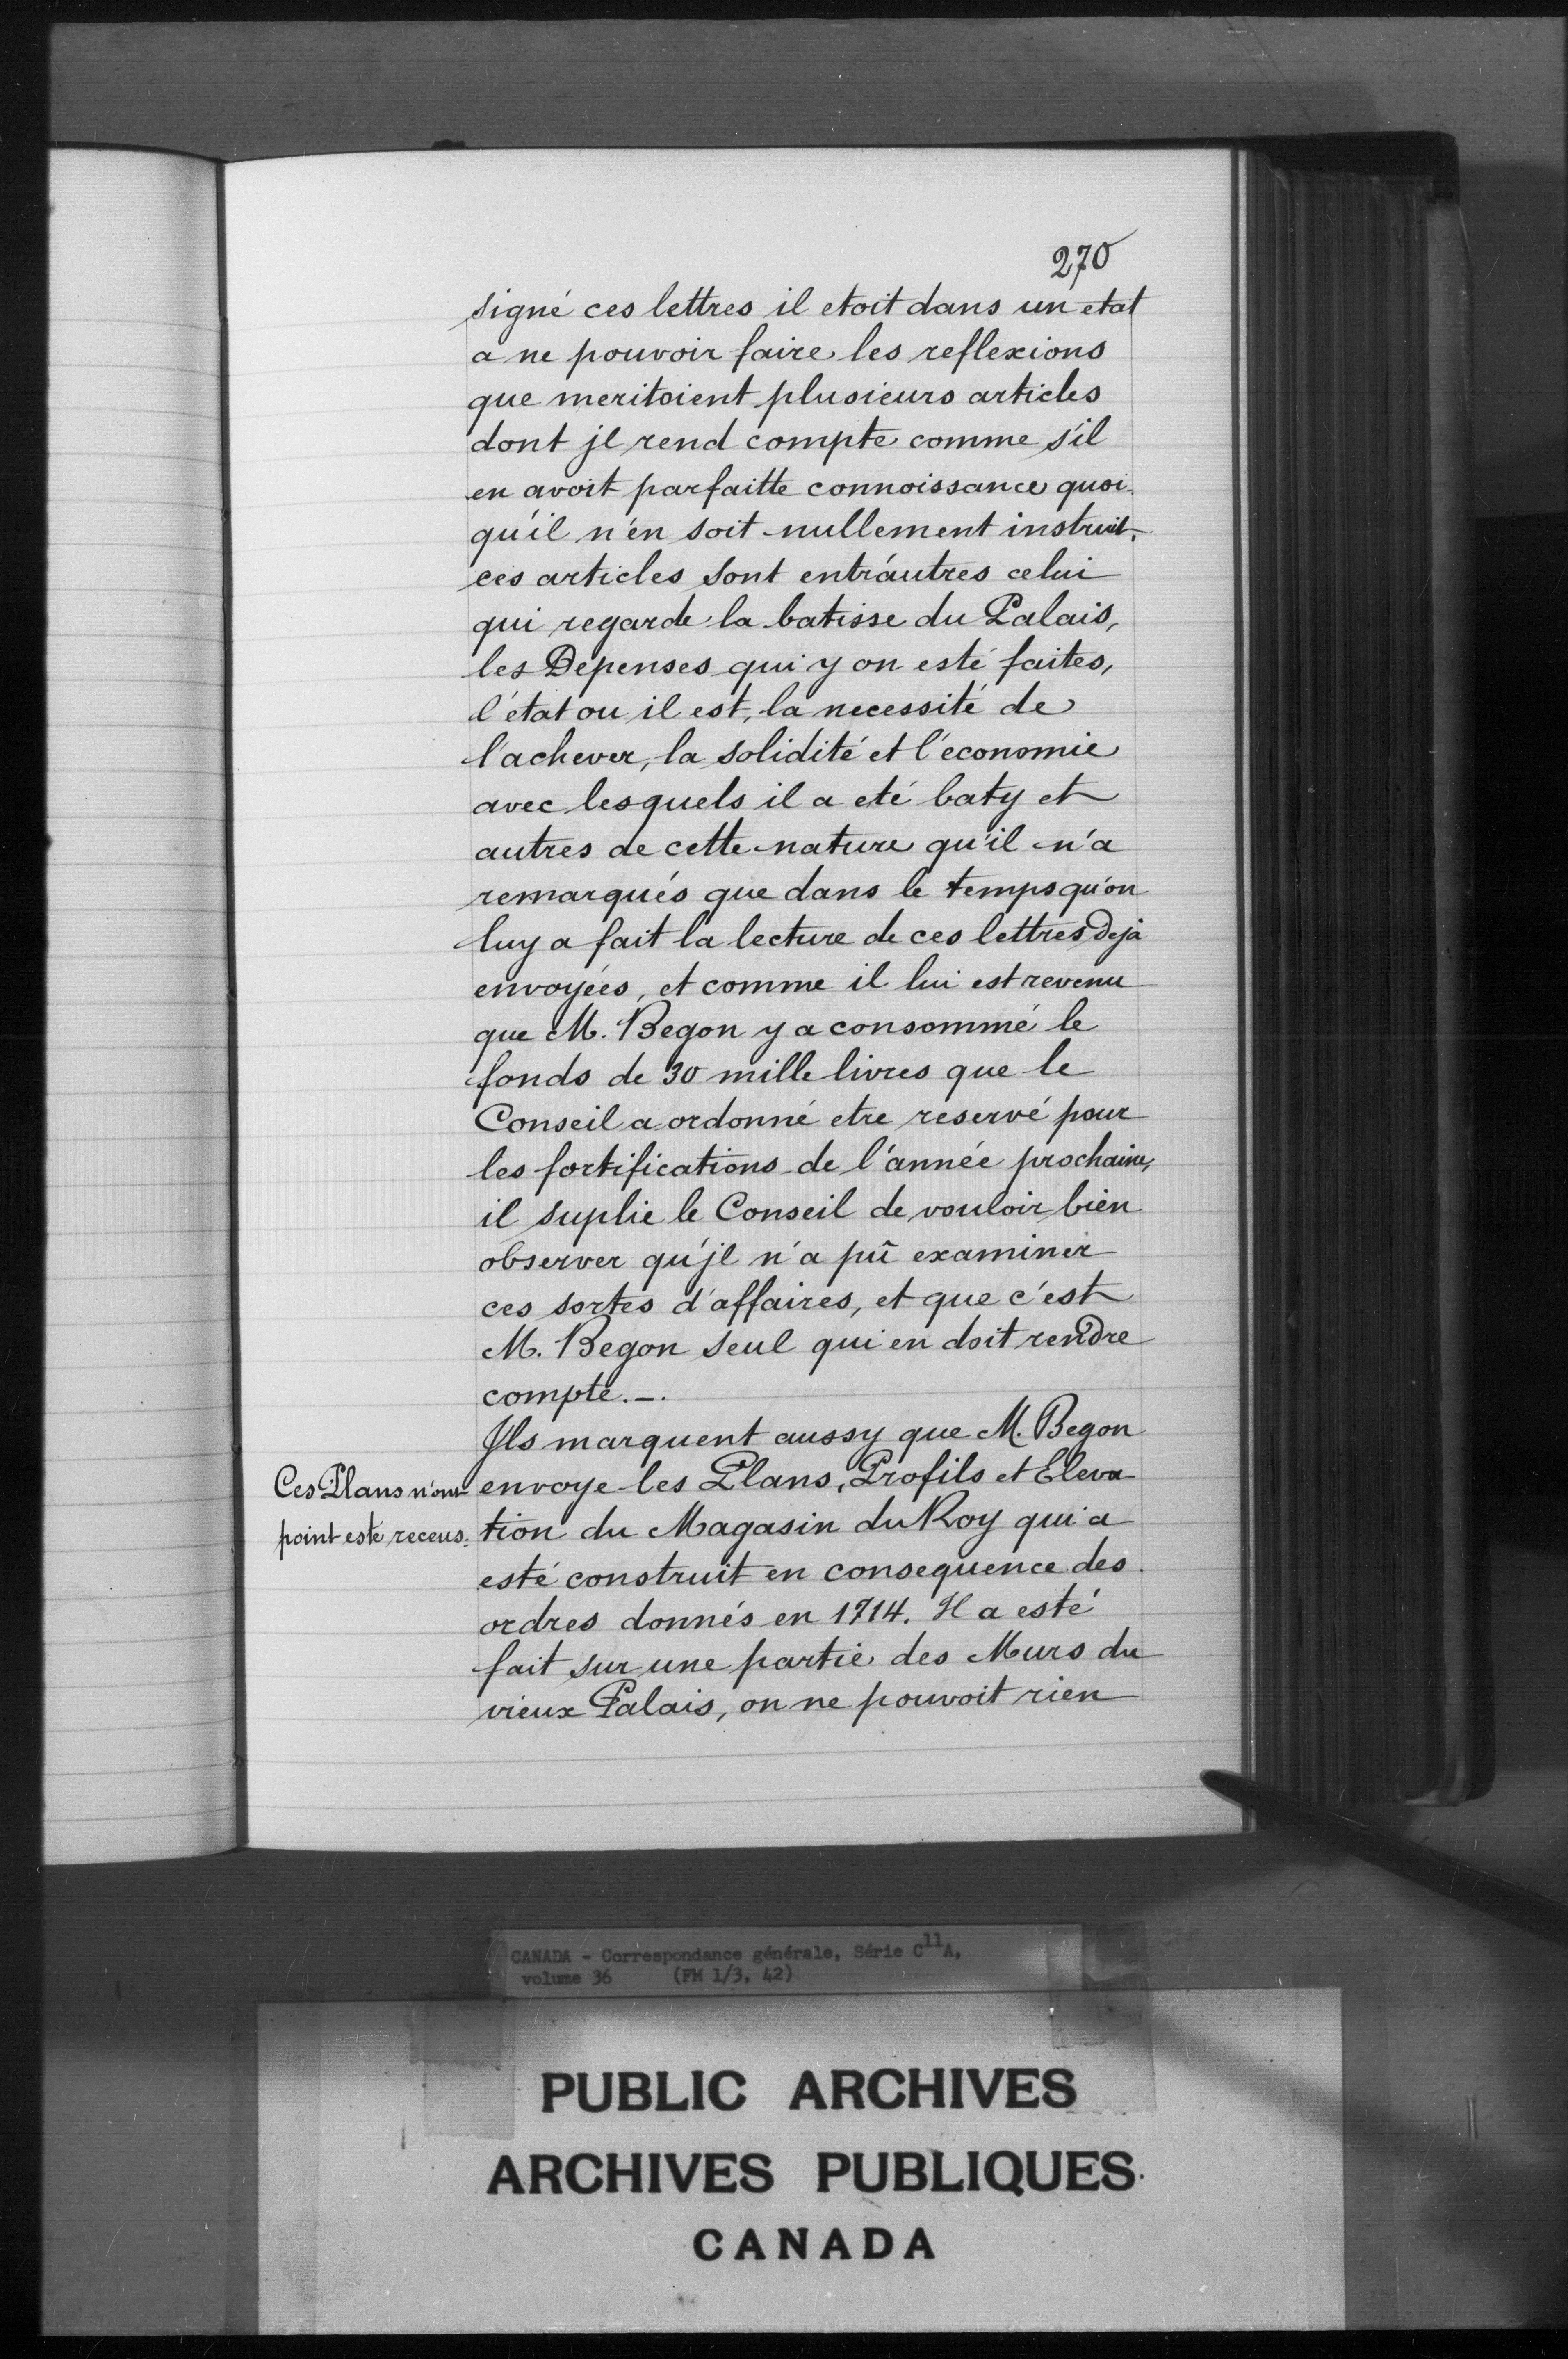 270
signé ces lettres il etoit dans un etat
a ne pouvoir faire les reflexions
que meritoient plusieurs articles
dont jl rend compte comme s'il
en avoit parfaitte connoissance quoi-
qu'il n'en soit nullement instruit.
ces articles sont entr'autres celui
qui regarde la batisse du Palais,
les Depenses qui y on esté faites,
l'état ou il est, la necessité de
l'achever, la solidité et l'économie
avec lesquels il a eté baty et
autres de cette nature qu'il n'a
remarqués que dans le temps qu'on
luy a fait la lecture de ces lettres Deja
envoyées, et comme il lui est revenu
que M. Begon y a consommé le
fonds de 30 mille livres que le
Conseil a ordonné etre reservé pour
les fortifications de l'année prochaine,
il suplie le Conseil de vouloir bien
observer qu'jl n'a pû examiner
ces sortes d'affaires, et que c'est
M. Begon seul qui en doit rendre
compte.-.
Jls marquent aussy que M. Begon
Ces Plans n'ont envoye les Plans, Profils et Eleva-
point esté receus. tion du Magasin du Roy qui a
esté construit en consequence des
ordres donnés en 1714. Il a esté
fait sur une partie des Murs du
vieux Palais, on ne pouvoit rien
CANADA - Correspondance générale, Série C11A,
volume 36 (FM 1/3, 42)
PUBLIC ARCHIVES
ARCHIVES PUBLIQUES
CANADA